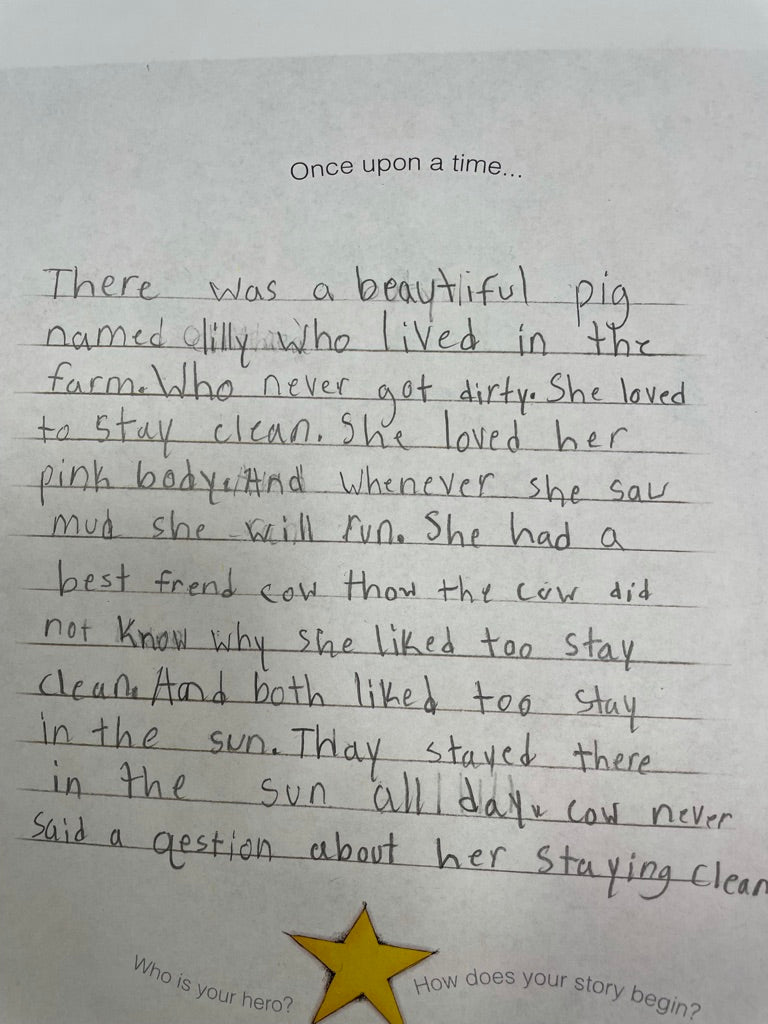 Once upon a time...
There was a beaytiful pig
named lilly who lived in the
farm. Who never got dirty. She loved
to stay clean. She loved her
pink body. And whenever she saw
mud she will run. She had a
best frend cow thow the cow did
not know why she liked too stay
clean. And both liked too stay
in the sun. Thay stayed there
in the sun all day. cow never
said a qestion about her staying clean
Who is your hero?
How does your story begin?